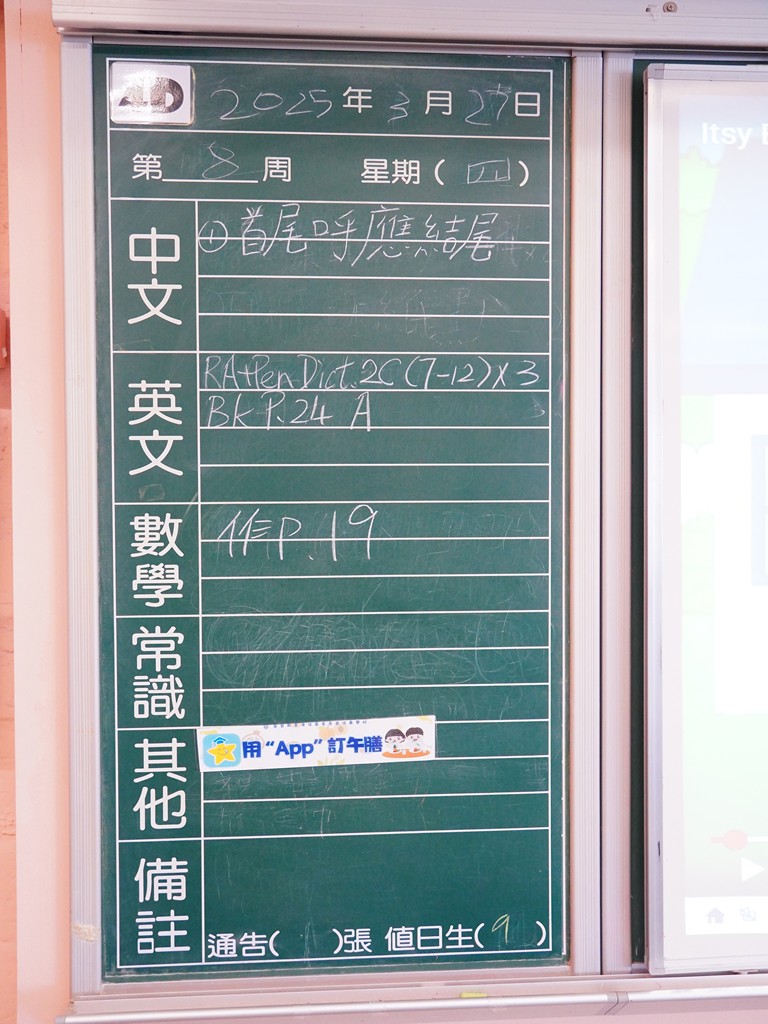 2025年3月27日
第8周 星期(四)
中文
①首尾呼應結尾
英文
RA+Pen Dict. 2C (7-12) x 3
Bk P. 24 A
數學
作P. 19
常識
其他
用“App”訂午膳
備註
通告( )張 值日生(9)
Itsy